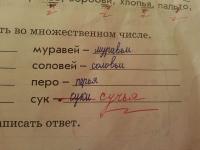 воробьи, хлопья, пальто,
ть во множественном числе.
муравей – муравьи
соловей – соловьи
перо – перья
сук – суки сучья
записать ответ.